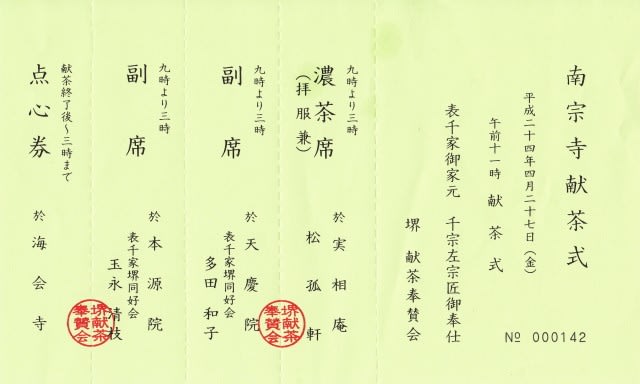 南宗寺献茶式
平成二十四年四月二十七日（金）
午前十一時　献茶式
表千家御家元　千宗左宗匠御奉仕
堺　献茶奉賛会
№ 000142
九時より三時
濃茶席
（拝服兼）
於　実相庵
松孤軒
堺献茶
奉賛会
九時より三時
副席
於　天慶院
表千家堺同好会
多田和子
九時より三時
副席
於　本源院
表千家堺同好会
玉永清枝
堺献茶
奉賛会
献茶終了後～三時まで
点心券
於　海会寺